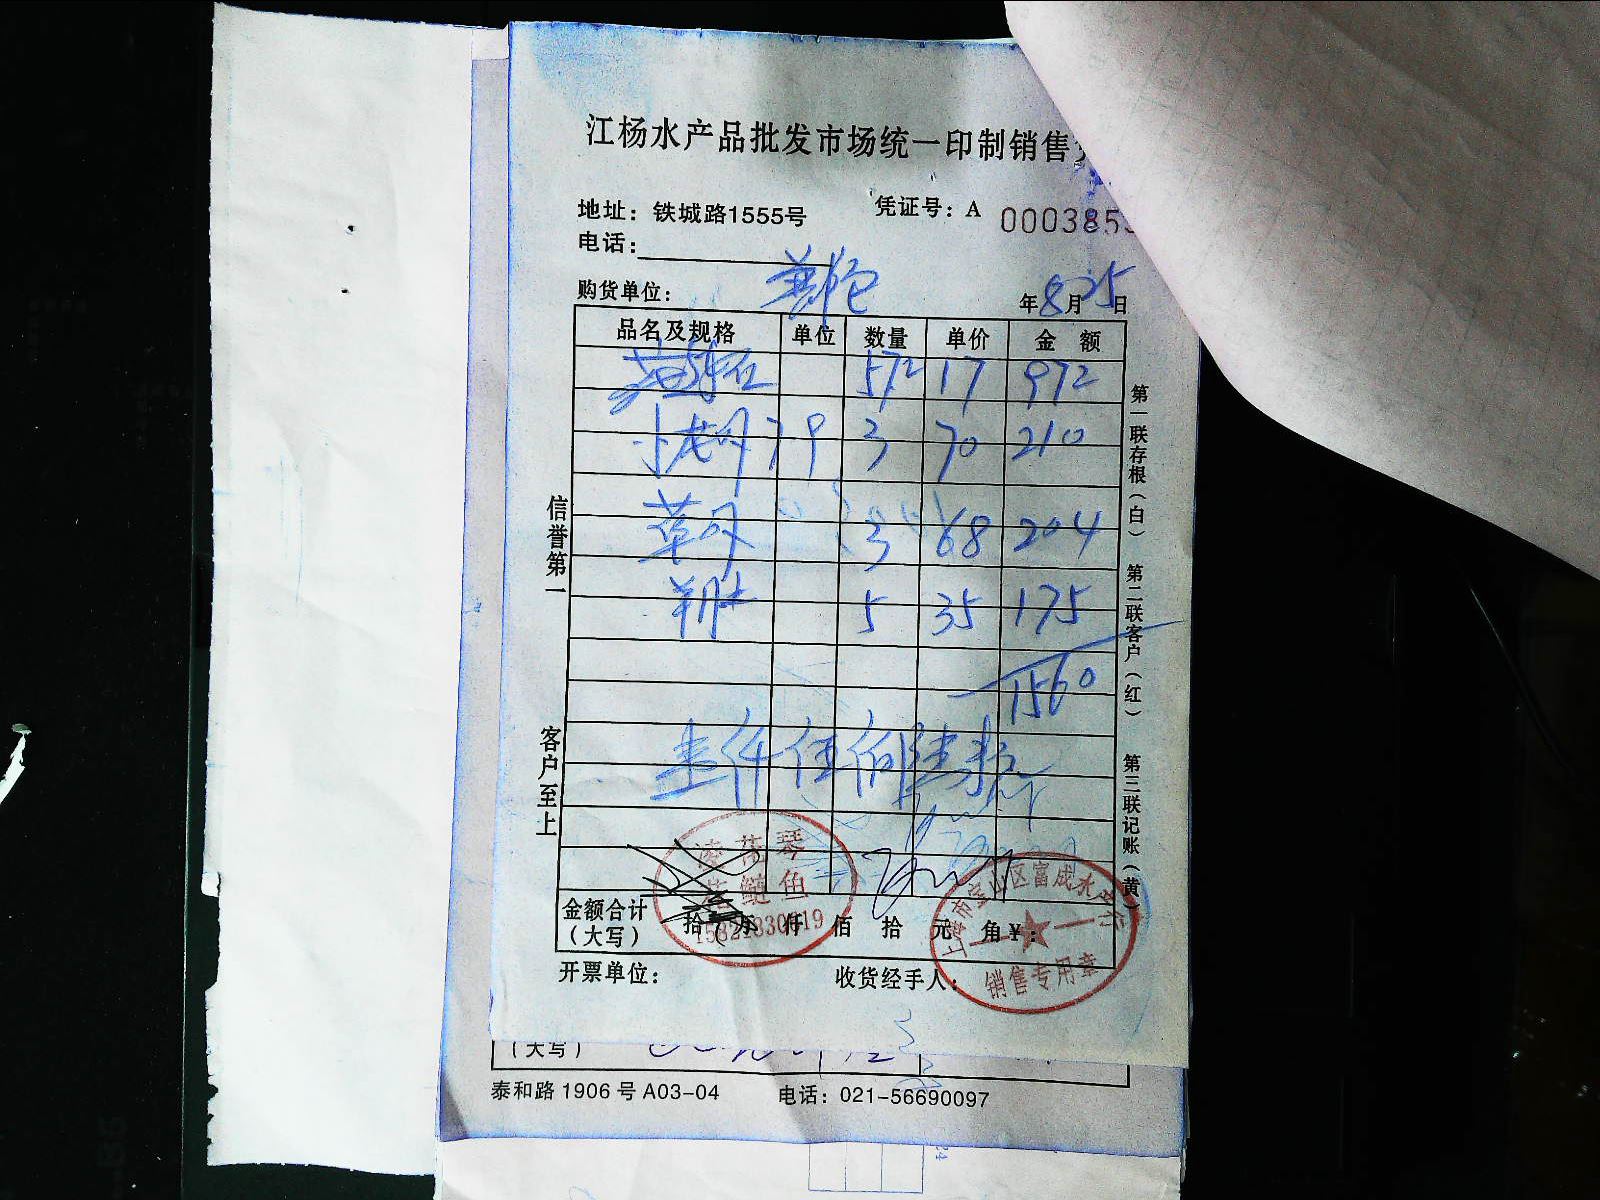 江杨水产品批发市场统一印制销售
地址：铁城路1555号
凭证号：A 0003853
电话：
购货单位：
年8月25日
品名及规格 单位 数量 单价 金额
572 17 972
3 70 210
草 3 68 204
羊肚 5 35 175
1560
壹仟伍佰陆拾
信誉第一
客户至上
第一联存根（白）
第二联客户（红）
第三联记账（黄）
琴
鲢鱼
金额合计
（大写）
拾 万 仟 佰 拾 元 角 ¥：
上海市宝山区富成水产行
销售专用章
开票单位：
收货经手人：
（大写）
泰和路1906号A03-04 电话：021-56690097